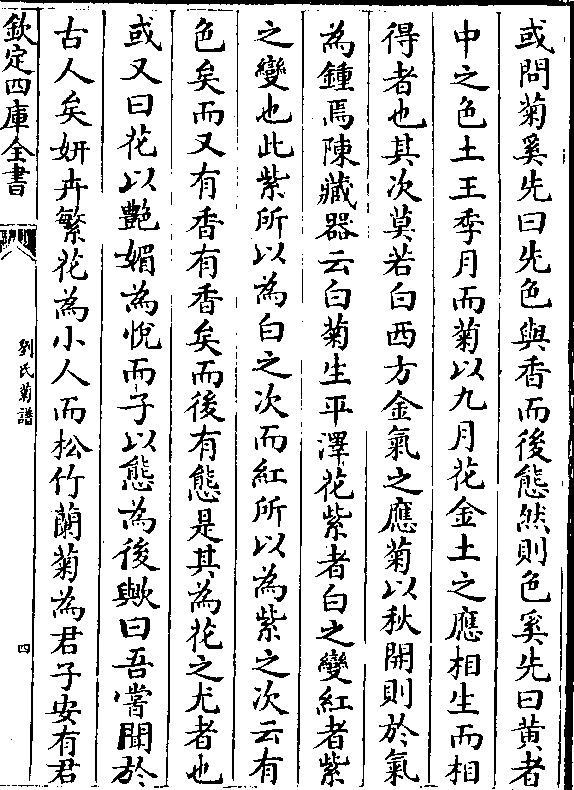 或問菊奚先曰先色與香而後態然則色奚先曰黄者
中之色土王季月而菊以九月花金土之應相生而相
得者也其次莫若白西方金氣之應菊以秋開則於氣
為鍾焉陳藏器云白菊生平澤花紫者白之變紅者紫
之變也此紫所以為白之次而紅所以為紫之次云有
色矣而又有香有香矣而後有態是其為花之尤者也
或又曰花以艶媚為悅而子以態為後歟曰吾嘗聞於
古人矣妍卉繁花為小人而松竹蘭菊為君子安有君
欽定四庫全書
劉氏菊譜
四